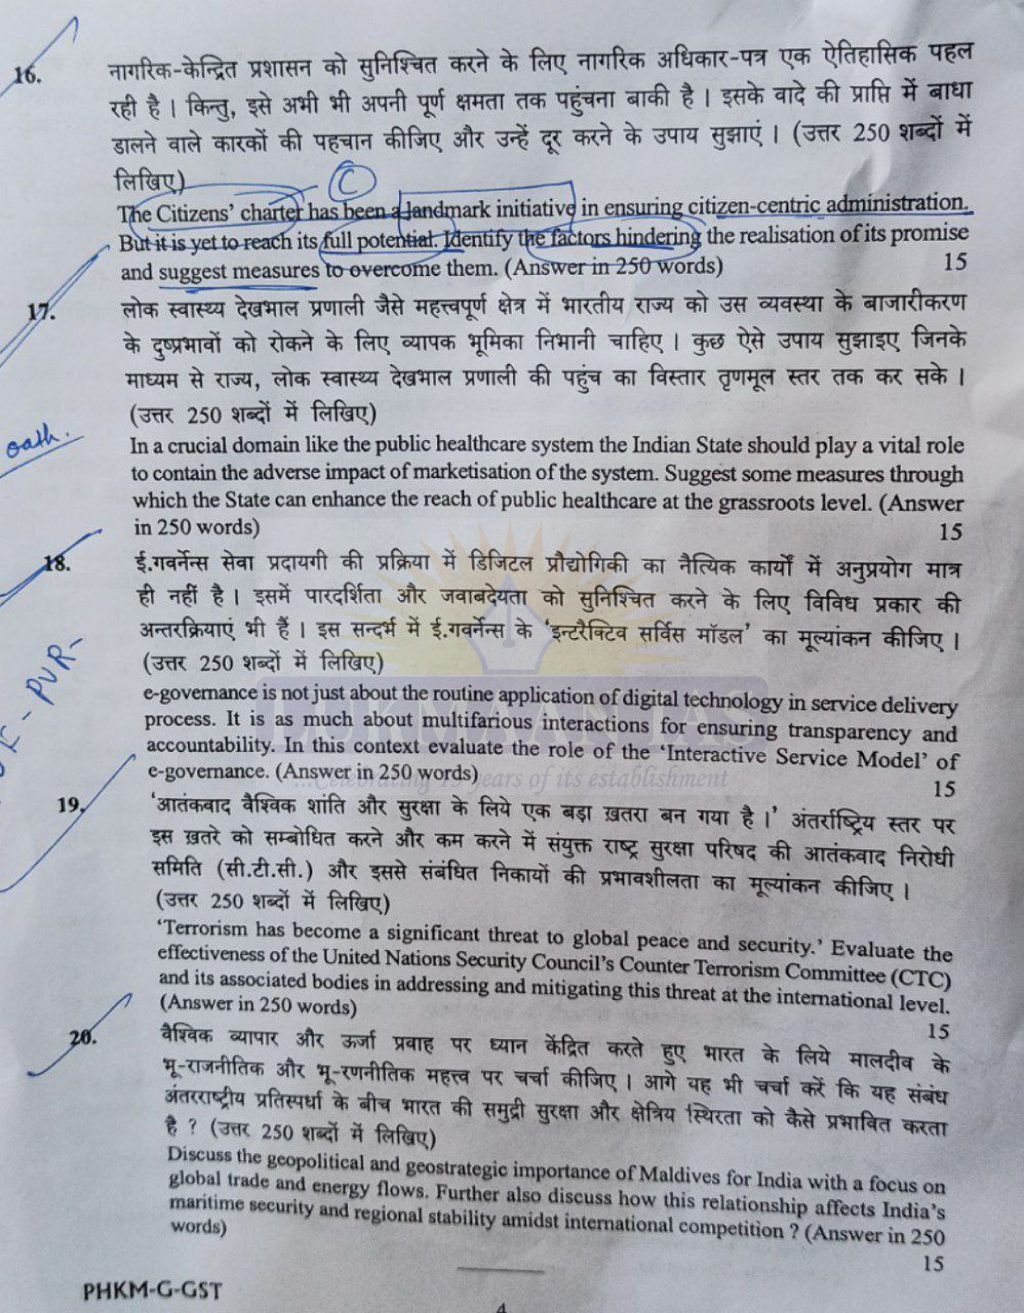 16.
नागरिक-केन्द्रित प्रशासन को सुनिश्चित करने के लिए नागरिक अधिकार-पत्र एक ऐतिहासिक पहल
रही है। किन्तु, इसे अभी भी अपनी पूर्ण क्षमता तक पहुंचना बाकी है। इसके वादे की प्राप्ति में बाधा
डालने वाले कारकों की पहचान कीजिए और उन्हें दूर करने के उपाय सुझाएं। (उत्तर 250 शब्दों में
लिखिए)
C
The Citizens' charter has been a landmark initiative in ensuring citizen-centric administration.
But it is yet to reach its full potential. Identify the factors hindering the realisation of its promise
and suggest measures to overcome them. (Answer in 250 words) 15
17.
लोक स्वास्थ्य देखभाल प्रणाली जैसे महत्त्वपूर्ण क्षेत्र में भारतीय राज्य को उस व्यवस्था के बाजारीकरण
के दुष्प्रभावों को रोकने के लिए व्यापक भूमिका निभानी चाहिए। कुछ ऐसे उपाय सुझाइए जिनके
माध्यम से राज्य, लोक स्वास्थ्य देखभाल प्रणाली की पहुंच का विस्तार तृणमूल स्तर तक कर सके।
(उत्तर 250 शब्दों में लिखिए)
oath.
In a crucial domain like the public healthcare system the Indian State should play a vital role
to contain the adverse impact of marketisation of the system. Suggest some measures through
which the State can enhance the reach of public healthcare at the grassroots level. (Answer
in 250 words) 15
18.
ई.गवर्नेन्स सेवा प्रदायगी की प्रक्रिया में डिजिटल प्रौद्योगिकी का नैत्यिक कार्यों में अनुप्रयोग मात्र
ही नहीं है। इसमें पारदर्शिता और जवाबदेयता को सुनिश्चित करने के लिए विविध प्रकार की
अन्तरक्रियाएं भी हैं। इस सन्दर्भ में ई.गवर्नेन्स के 'इन्टरैक्टिव सर्विस मॉडल' का मूल्यांकन कीजिए।
(उत्तर 250 शब्दों में लिखिए)
- PVR-
e-governance is not just about the routine application of digital technology in service delivery
process. It is as much about multifarious interactions for ensuring transparency and
accountability. In this context evaluate the role of the 'Interactive Service Model' of
e-governance. (Answer in 250 words) 15
years of its establishment
19.
'आतंकवाद वैश्विक शांति और सुरक्षा के लिये एक बड़ा ख़तरा बन गया है।' अंतर्राष्ट्रिय स्तर पर
इस ख़तरे को सम्बोधित करने और कम करने में संयुक्त राष्ट्र सुरक्षा परिषद की आतंकवाद निरोधी
समिति (सी.टी.सी.) और इससे संबंधित निकायों की प्रभावशीलता का मूल्यांकन कीजिए।
(उत्तर 250 शब्दों में लिखिए)
'Terrorism has become a significant threat to global peace and security.' Evaluate the
effectiveness of the United Nations Security Council's Counter Terrorism Committee (CTC)
and its associated bodies in addressing and mitigating this threat at the international level.
(Answer in 250 words) 15
20.
वैश्विक व्यापार और ऊर्जा प्रवाह पर ध्यान केंद्रित करते हुए भारत के लिये मालदीव के
भू-राजनीतिक और भू-रणनीतिक महत्त्व पर चर्चा कीजिए। आगे यह भी चर्चा करें कि यह संबंध
अंतरराष्ट्रीय प्रतिस्पर्धा के बीच भारत की समुद्री सुरक्षा और क्षेत्रिय स्थिरता को कैसे प्रभावित करता
है? (उत्तर 250 शब्दों में लिखिए)
Discuss the geopolitical and geostrategic importance of Maldives for India with a focus on
global trade and energy flows. Further also discuss how this relationship affects India's
maritime security and regional stability amidst international competition ? (Answer in 250
words) 15
PHKM-G-GST
4